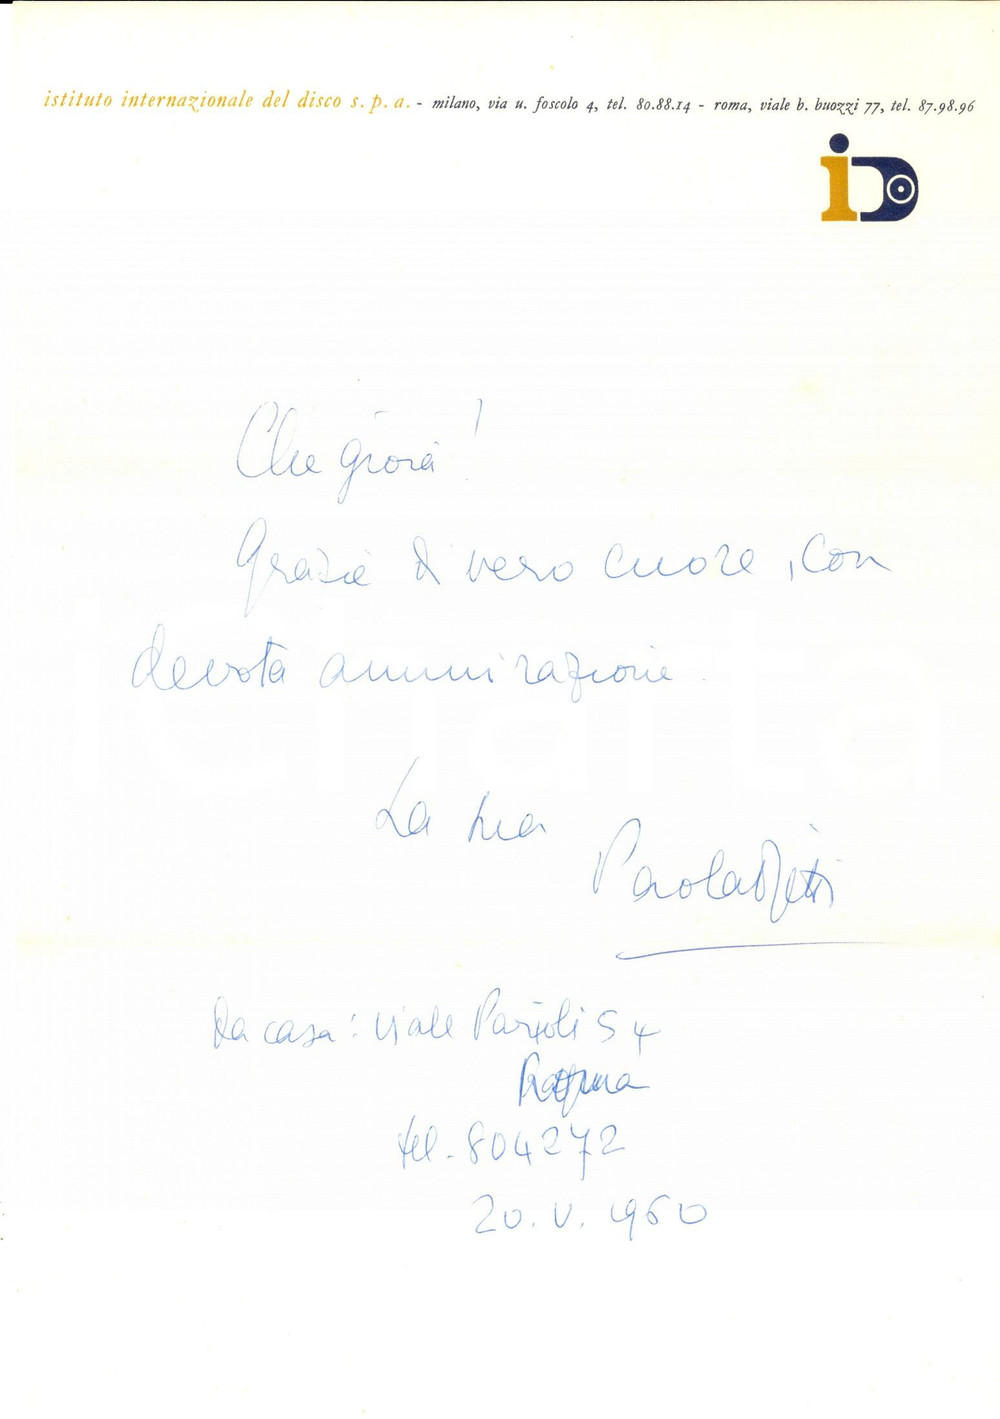 istituto internazionale del disco s. p. a. - milano, via u. foscolo 4, tel. 80.88.14 - roma, viale b. buozzi 77, tel. 87.98.96
iD
Che gioia!
Grazie di vero cuore, con
devota ammirazione.
La sua
Paola Ojetti
Da casa: Viale Parioli 54
Roma
tel. 804272
20. V. 1960
iCharta